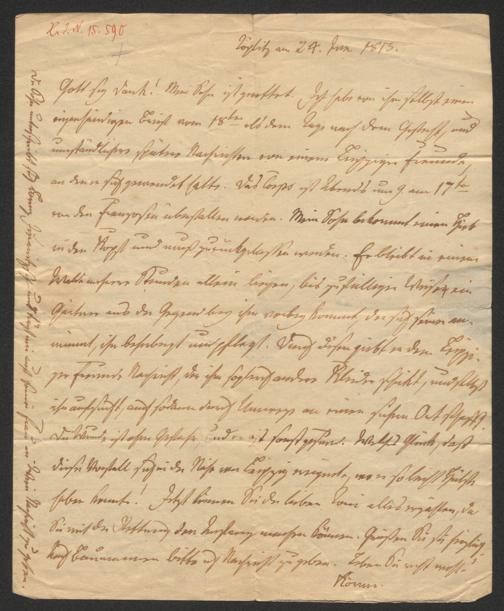 H. I. N. 15.590
Töplitz am 24. Jun. 1813.
Gott sey Dank! Mein Sohn ist gerettet. Ich habe von ihm selbst einen
eigenhändigen Brief vom 18ten als dem Tage nach dem Gefecht, und
umständlichere spätere Nachrichten von einem Leipziger Freunde,
an den er sich gewendet hatte. Das Corps ist Abends um 9 am 17ten
von den Franzosen überfallen worden. Mein Sohn bekommt einen Hieb
in den Kopf und muß zurückgelassen werden. Er bleibt in einem
Walde mehrere Stunden allein liegen, bis zufälliger Weise ein
Gärtner aus der Gegend bey ihm vorbey kommt, der sich seiner an-
nimmt, ihn beherbergt und pflegt. Durch diesen giebt er dem Leipzi-
ger Freunde Nachricht, der ihm sogleich andere Kleider schickt, und selbst
ihn aufsucht, auch sodann durch Umwege an einen sichern Ort schafft.
Die Wunde ist ohne Gefahr, und er ist sonst gesund. Welch Glück, daß
dieser Vorfall sich in der Nähe von Leipzig ereignete, wo er so leicht Hülfe
haben konnte! Jetzt können Sie der lieben Toni alles erzählen, da
Sie mit der Rettung den Anfang machen können. Grüßen Sie sie herzlich.
bitte um Nachricht zu geben. Leben Sie recht wohl!
Körner.